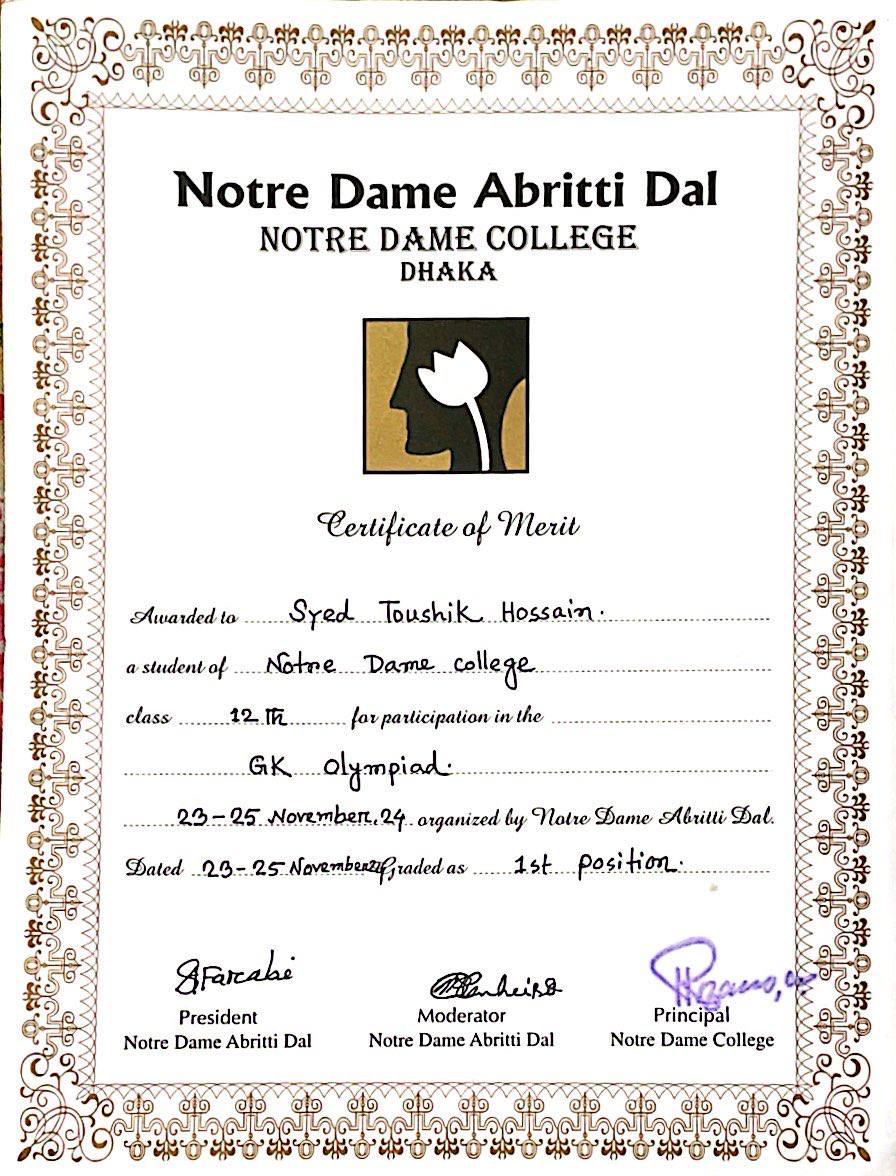 Notre Dame Abritti Dal
NOTRE DAME COLLEGE
DHAKA
Certificate of Merit
Awarded to Syed Toushik Hossain.
a student of Notre Dame college
class 12 th for participation in the
GK Olympiad.
23-25 November, 24 organized by Notre Dame Abritti Dal.
Dated 23-25 November 24 Graded as 1st position.
Farabi
President Moderator Principal
Notre Dame Abritti Dal Notre Dame Abritti Dal Notre Dame College